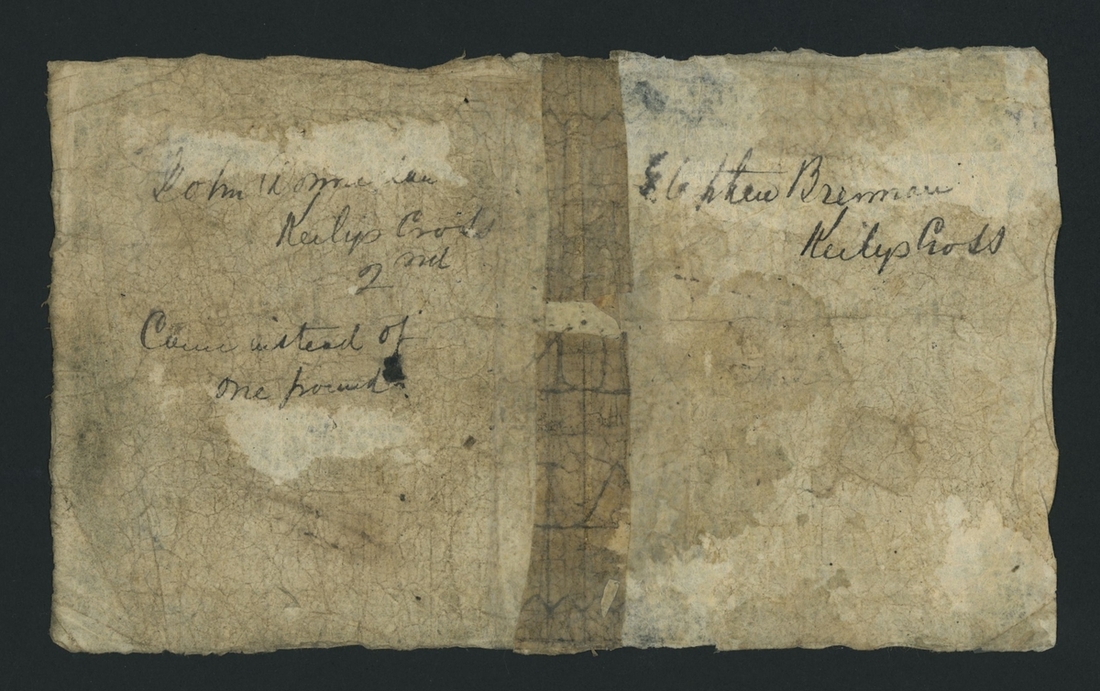 John
Keilys Cross
2nd
Came instead of
one pound.
Stephen Brennan
Keilys Cross